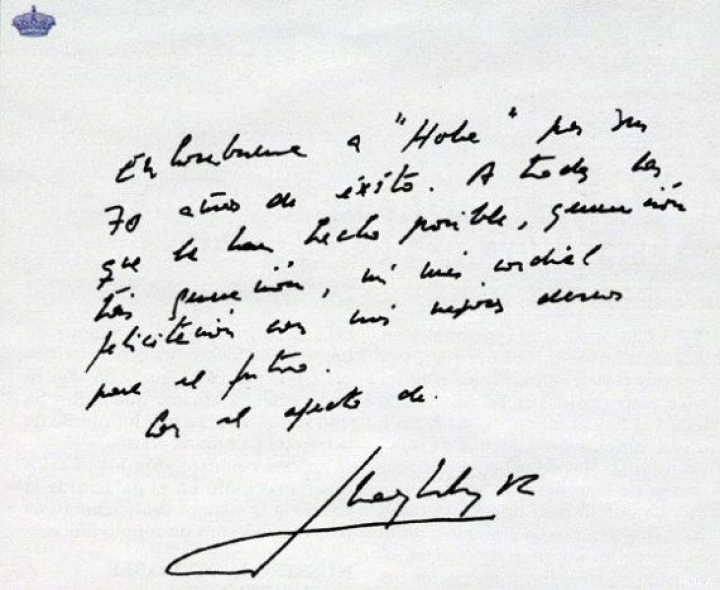 Enhorabuena a "Hola" por sus
70 años de éxito. A todos los
que lo han hecho posible, generación
tras generación, mi más cordial
felicitación con mis mejores deseos
para el futuro.
Con el afecto de.
Juan Carlos R
HOLA